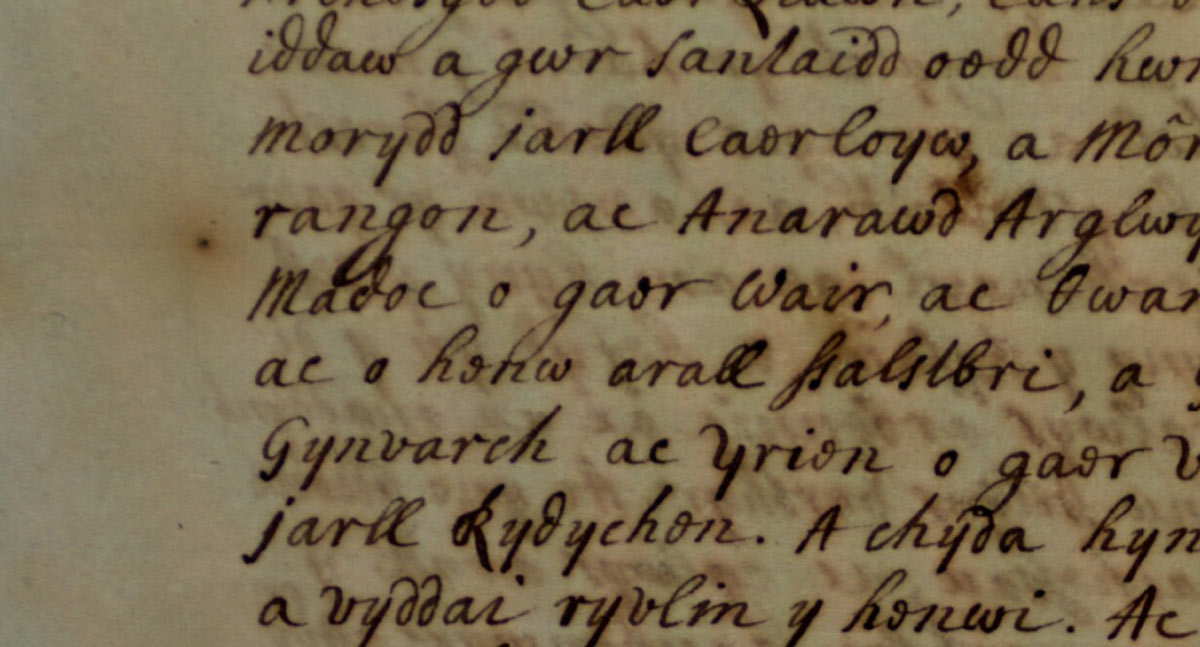 iddaw a gwr sanlaidd oedd
morydd jarll Caerloyw, a Môr
rangon, ac Anarawd Arglwy
Madoc o gaer Wair, ac
ac o henw arall ssalslbri, a
Gynvarch ac Yrien o gaer
jarll Rydychen. A chyda hyn
a vyddai ryvlin y henwi. Ac